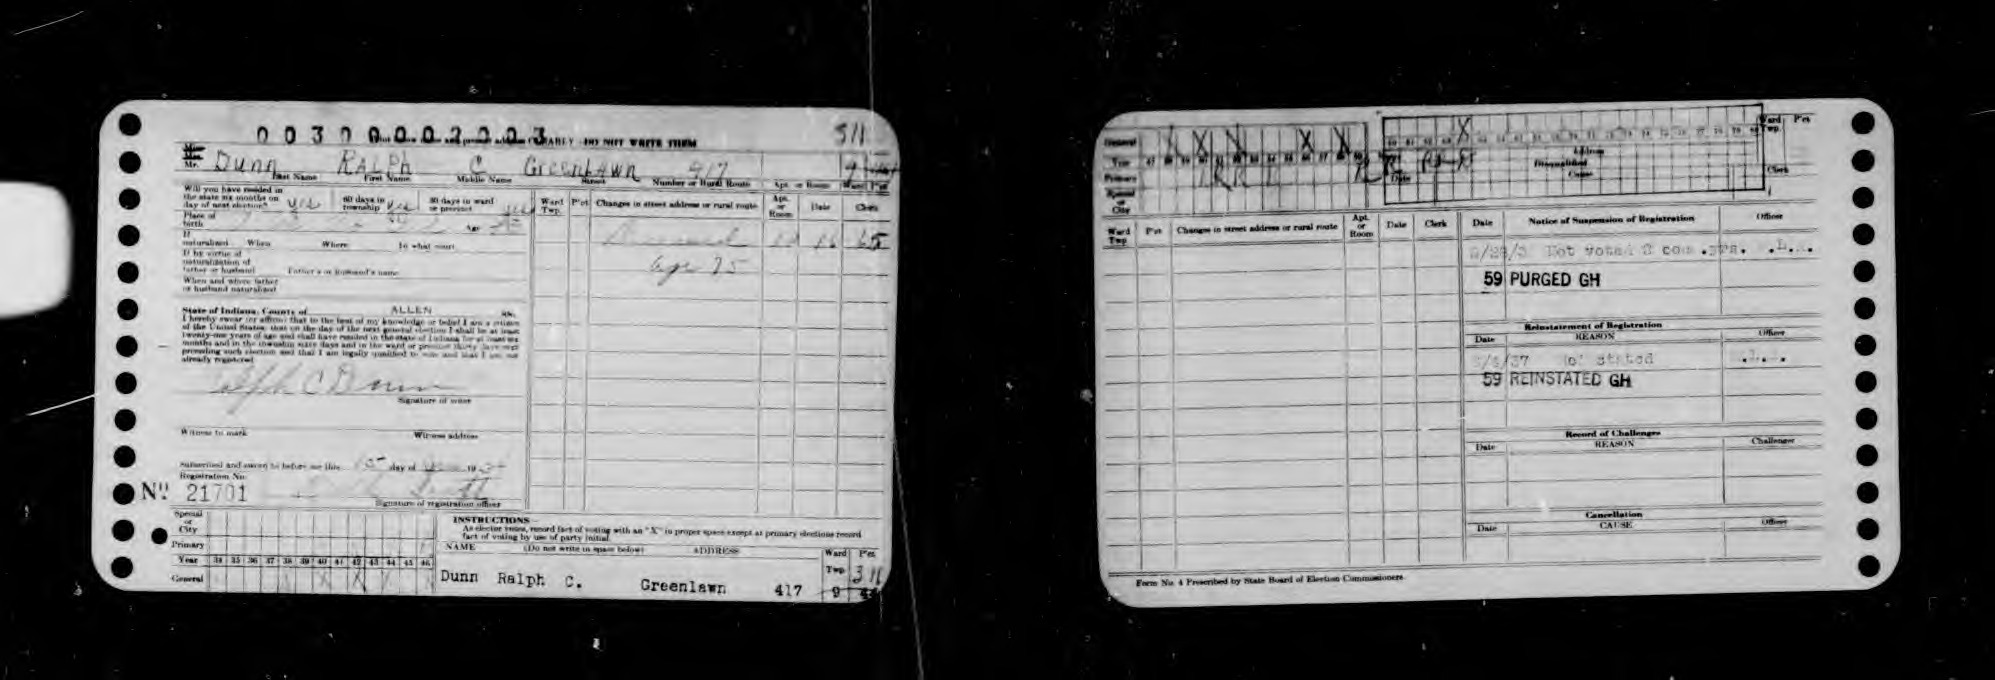 0030000203
CLEARLY - DO NOT WRITE THEM
Mr. Dunn RALPh C GreenLAwn 417 9
Last Name First Name Middle Name Street Number or Rural Route Apt. or Room Ward Pct
Will you have resided in the state six months on day of next election? yes 60 days in township yes 30 days in ward or precinct yes
Place of birth Age
If naturalized When Where In what court
If by virtue of naturalization of father or husband Father's or husband's name
When and where father or husband naturalized
Ward Twp. P'ct Changes in street address or rural route Apt. or Room Date Clerk
Deceased 10 16 65
age 75
State of Indiana, County of ALLEN ss.
I hereby swear (or affirm) that to the best of my knowledge or belief I am a citizen
of the United States; that on the day of the next general election I shall be at least
twenty-one years of age and shall have resided in the state of Indiana for at least six
months and in the township sixty days and in the ward or precinct thirty days next
preceding such election and that I am legally qualified to vote and that I am not
already registered.
Ralph C Dunn
Signature of voter
Witness to mark Witness address
Subscribed and sworn to before me this 15 day of 19
Registration No.
Nº 21701
Signature of registration officer
Special or City
Primary
Year 34 35 36 37 38 39 40 41 42 43 44 45 46
General X X X
INSTRUCTIONS—
As elector votes, record fact of voting with an "X" in proper space except at primary elections record
fact of voting by use of party initial.
NAME (Do not write in space below) ADDRESS Ward Twp P'ct
311
Dunn Ralph C. Greenlawn 417 9
General X X X X
Year
Primary R R
Special or City
Address
Disqualified
Cause
Date
Ward Twp. P'ct
Clerk
Ward Twp P'ct Changes in street address or rural route Apt. or Room Date Clerk
Date Notice of Suspension of Registration Officer
Not voted 2 con. yrs.
59 PURGED GH
Reinstatement of Registration
Date REASON Officer
59 REINSTATED GH
Record of Challenges
Date REASON Challenger
Cancellation
Date CAUSE Officer
Form No. 4 Prescribed by State Board of Election Commissioners